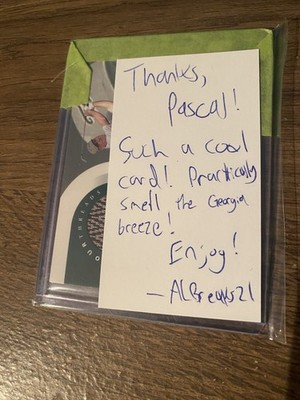 Thanks,
Pascal!
Such a cool
card! Practically
smell the Georgia
breeze!
Enjoy!
— ALBreaks21
OUR THREADS